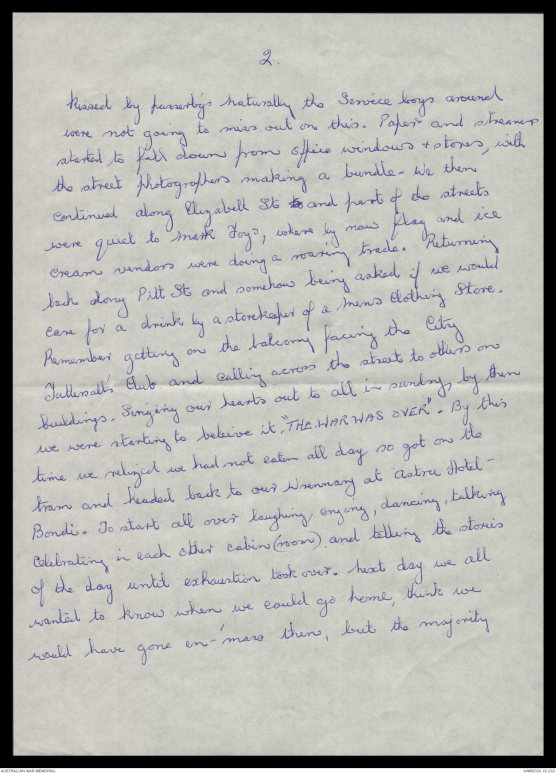 2.
Kissed by passerby's naturally the Service boys around
were not going to miss out on this. Paper and streamers
started to fall down from office windows + stores, with
the street photographers making a bundle - We then
continued along Elizabeth St to and part of the streets
were quiet to Mark Foys, where by now flag and ice
cream vendors were doing a roaring trade. Returning
back along Pitt St and somehow being asked if we would
care for a drink by a storekeeper of a mens Clothing Store.
Remember getting on the balcony facing the City
Tattersall's Club and calling across the street to others on
buildings. Singing our hearts out to all in sundry, by then
we were starting to beleive it. "THE WAR WAS OVER" - By this
time we relized we had not eaten all day so got on the
tram and headed back to our Wrennary at Astra Hotel -
Bondi. To start all over laughing, singing, dancing, talking
Celebrating in each other cabin (room) and telling the stories
of the day until exhaustion took over. Next day we all
wanted to know when we could go home, think we
would have gone en-'mass then, but the majority
AUSTRALIAN WAR MEMORIAL